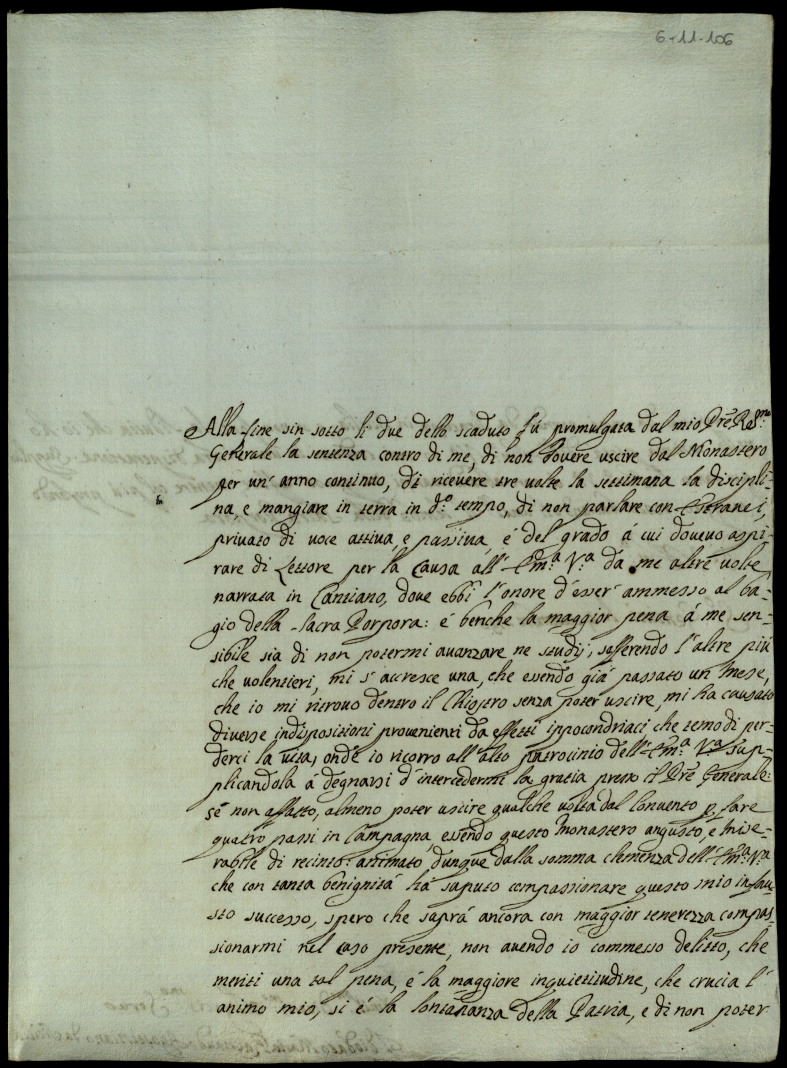 6-11-106
Alla fine sin sotto li due dello scaduto fù promulgata dal mio Prẽ R.mo
Generale la sentenza contro di me, di non dovere uscire dal Monastero
per un' anno continuo, di ricevere tre volte la settimana la discipli=
na, e mangiare in terra in d.o tempo, di non parlare con Estranei,
privato di voce attiva, e passiva, é del grado á cui dovevo aspi=
rare di Lettore per la causa all' Em.a V.a da me altre volte
narrata in Cantiano, dove ebbi l'onore d'esser ammesso al ba=
gio della Sacra Porpora: é benche la maggior pena á me sen=
sibile sia di non potermi avanzare ne studij, sofferendo l'altre più
che volentieri, mi s'accresce una, che essendo già passato un Mese,
che io mi ritrovo dentro il Chiostro senza poter uscire, mi ha causato
diverse indisposizioni provenienti da effetti ippocondriaci che temo di per=
derci la vita, ond'é io ricorro all'alto patrocinio dell' Em.a V.a sup=
plicandola á degnarsi d'intercedermi la gratia presso il Prẽ Generale:
sé non affatto, almeno poter uscire qualche volta dal Convento p fare
quatro passi in Campagna, essendo questo Monastero angusto, e mise=
rabile di recinto: animato dunque dalla somma clemenza dell' Em.a V.a
che con tanta benignità hà saputo compassionare questo mio infau
sto successo, spero che saprà ancora con maggior tenerezza compas=
sionarmi nel caso presente, non avendo io commesso delitto, che
meriti una tal pena, é la maggiore inquietitudine, che crucia l'
animo mio, si é la lontananza della Patria, e di non poter